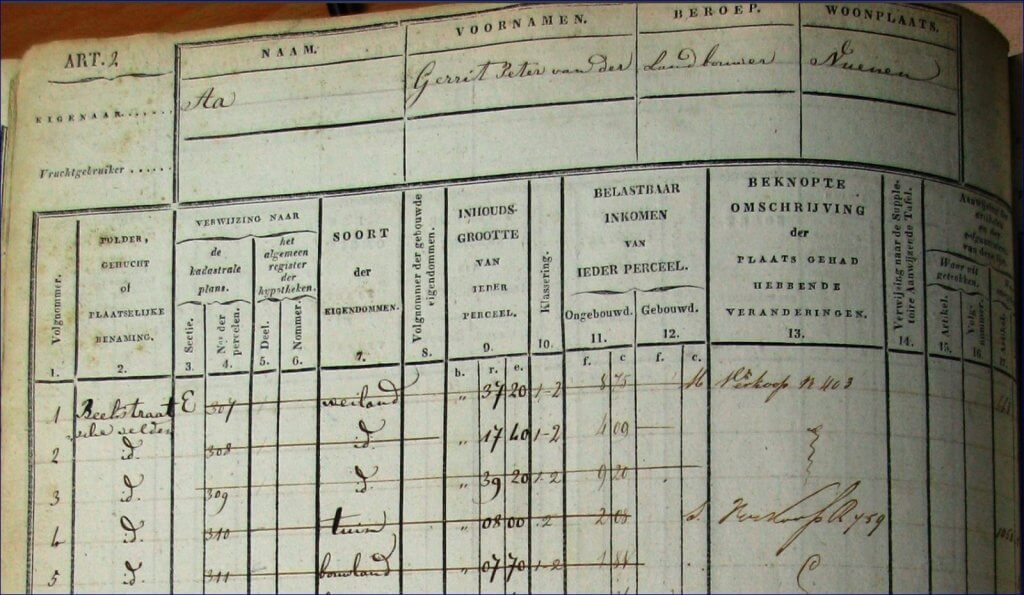 ART. 2.
NAAM. VOORNAMEN. BEROEP. WOONPLAATS.
EIGENAAR...... Aa Gerrit Peter van der Landbouwer Nuenen
Vruchtgebruiker ......
Volgnommer.
POLDER,
GEHUCHT
of
PLAATSELIJKE
BENAMING.
VERWIJZING NAAR
de
kadastrale
plans.
Sectie.
Nos der
perceelen.
het
algemeen
register
der
hypotheken.
Deel.
Nommer.
SOORT
der
EIGENDOMMEN.
Volgnommer der gebouwde
eigendommen.
INHOUDS-
GROOTTE
VAN
IEDER
PERCEEL.
Klassering.
BELASTBAAR
INKOMEN
VAN
IEDER PERCEEL.
Ongebouwd. Gebouwd.
BEKNOPTE
OMSCHRIJVING
der
PLAATS GEHAD
HEBBENDE
VERANDERINGEN.
Verwijzing naar de Supple-
toire Aanwijzende Tafel.
Waar uit
getrokken.
Artikel.
Volg-
nommer.
1. 2. 3. 4. 5. 6. 7. 8. 9. 10. 11. 12. 13. 14. 15. 16.
b. r. e. f. c f. c.
1 Beekstraat E 307 weiland " 37 20 1-2 8 75 Verkoop N 403
velden
2 id. 308 id. " 17 40 1-2 4 09
3 id. 309 id. " 39 20 1-2 9 20
4 id. 310 tuin " 08 00 .2 2 08 Verkoop 759
5 id. 311 bouwland " 07 70 1-2 1 81